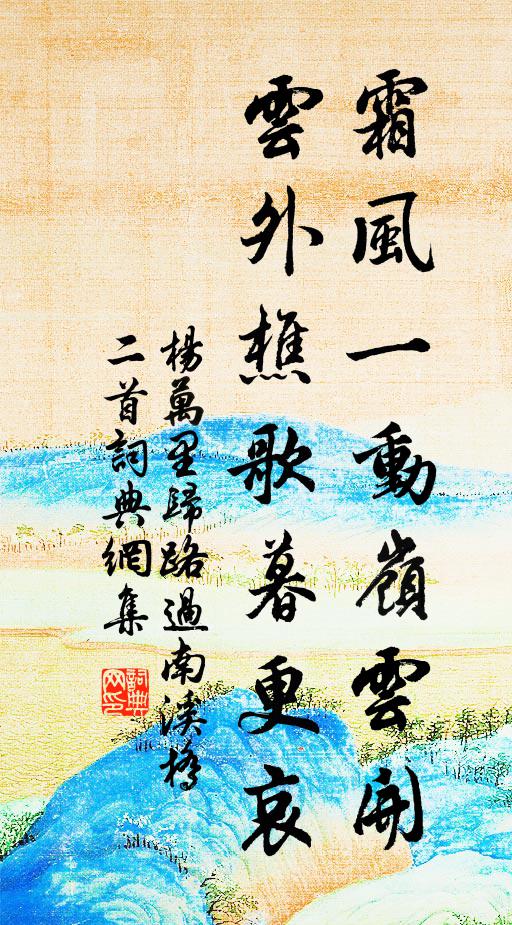 霜風一動嶺雲開
雲外樵歌暮更哀
楊萬里歸路過南溪橋
二首詞典網集
詞典
网印